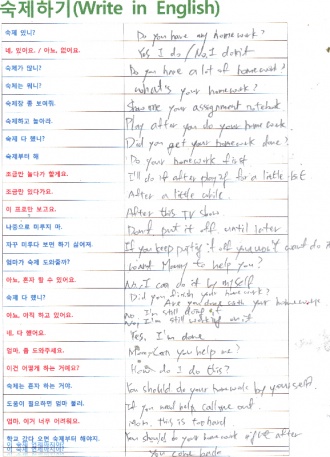 숙제하기(Write in English)
숙제 있니? Do you have any homework?
네, 있어요. / 아뇨, 없어요. Yes I do / No, I don't
숙제가 많니? Do you have a lot of homework?
숙제는 뭐니? what's your homework?
숙제장 좀 보여줘. Show me your assignment notebook
숙제하고 놀아라. Play after you do your homework.
숙제 다 했니? Did you get your homework done?
숙제부터 해 Do your homework first
조금만 놀다가 할게요. I'll do it after for a little
조금만 있다가요. After a little while.
이 프로만 보고요. After this TV show.
나중으로 미루지 마. Don't put it off until later
자꾸 미루다 보면 하기 싫어져. If you keep putting it off you won't want do
엄마가 숙제 도와줄까? want Mommy to help you?
아뇨, 혼자 할 수 있어요. No, I can do it by myself
숙제 다 했니? Did you finish your homework?
Are you done with your homework
아뇨, 아직 하고 있어요. No. I'm still doing it
No, I'm still working on it
네, 다 했어요. Yes, I'm done
엄마, 좀 도와주세요. Mom, Can you help me?
이건 어떻게 하는 거예요? How do I do this?
숙제는 혼자 하는 거야. You should do your homework by yourself.
도움이 필요하면 엄마 불러. If you need help call me out
엄마, 이거 너무 어려워요. Mom, this is too hard
학교 갔다 오면 숙제부터 해야지. You should do your homework after
You come back